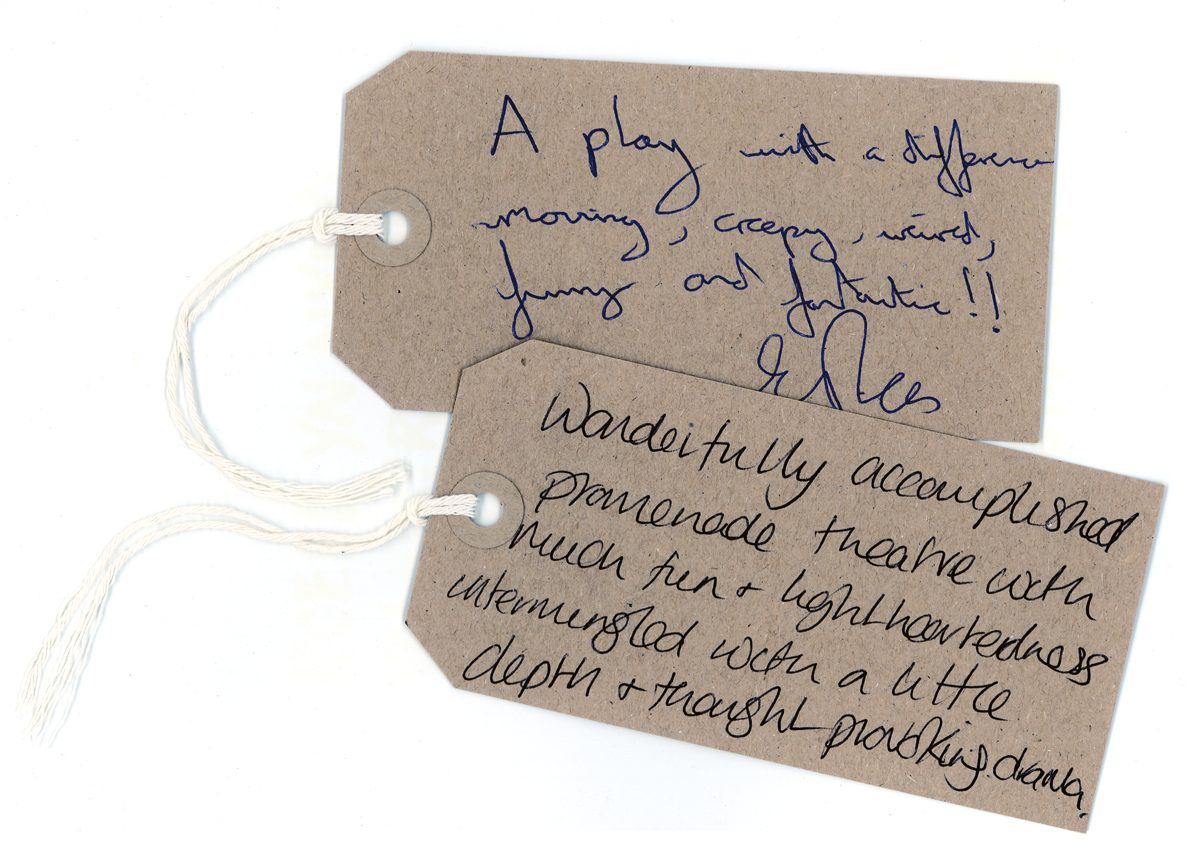 A play with a difference
moving, creepy, weird,
funny and fantastic!!
Wonderfully accomplished
promenade theatre with
much fun + lightheartedness
intermingled with a little
depth + thought provoking drama.